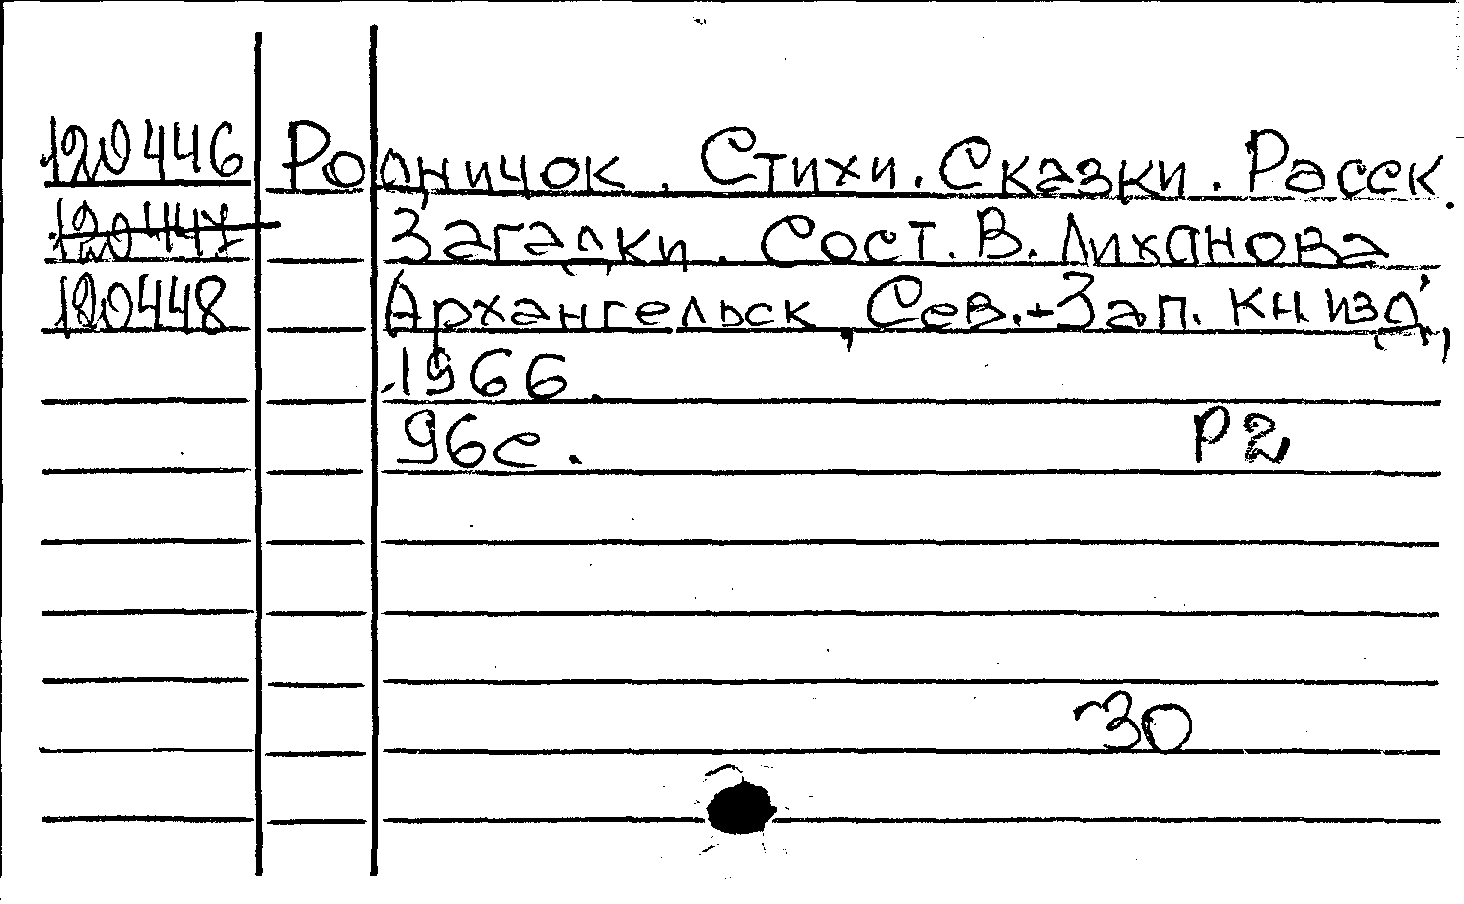 120446 Родничок. Стихи. Сказки. Расск.
120447 Загадки. Сост. В. Лиханова
120448 Архангельск, Сев.-Зап. кн изд,
1966.
96с. Р2
30